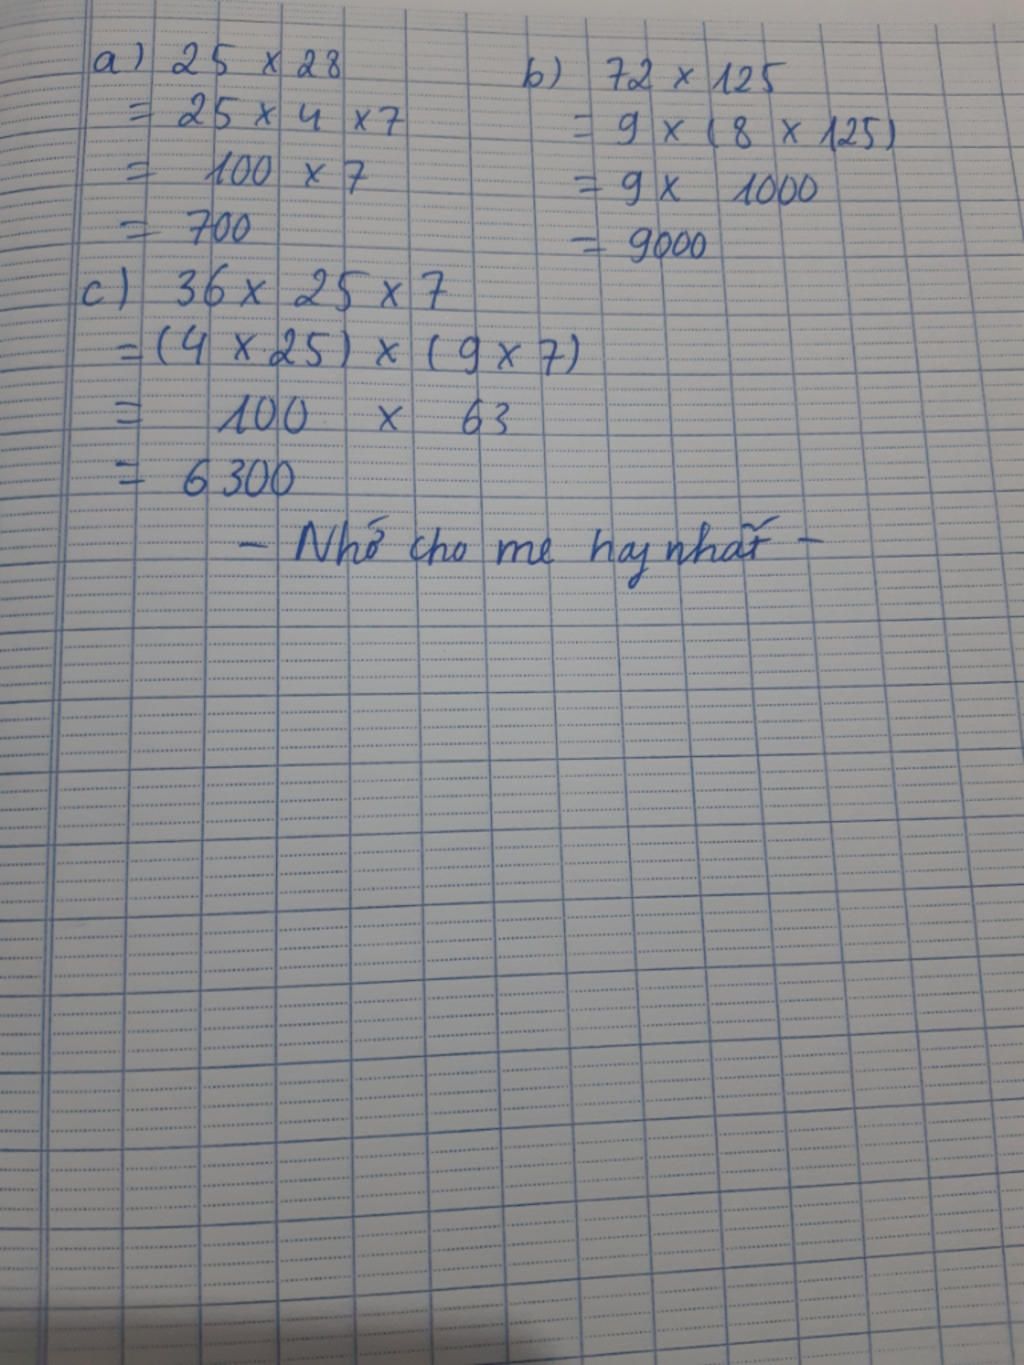 a) 25 x 28
= 25 x 4 x 7
= 100 x 7
= 700
b) 72 x 125
= 9 x (8 x 125)
= 9 x 1000
= 9000
c) 36 x 25 x 7
= (4 x 25) x (9 x 7)
= 100 x 63
= 6300
- Nhớ cho me hay nhất -